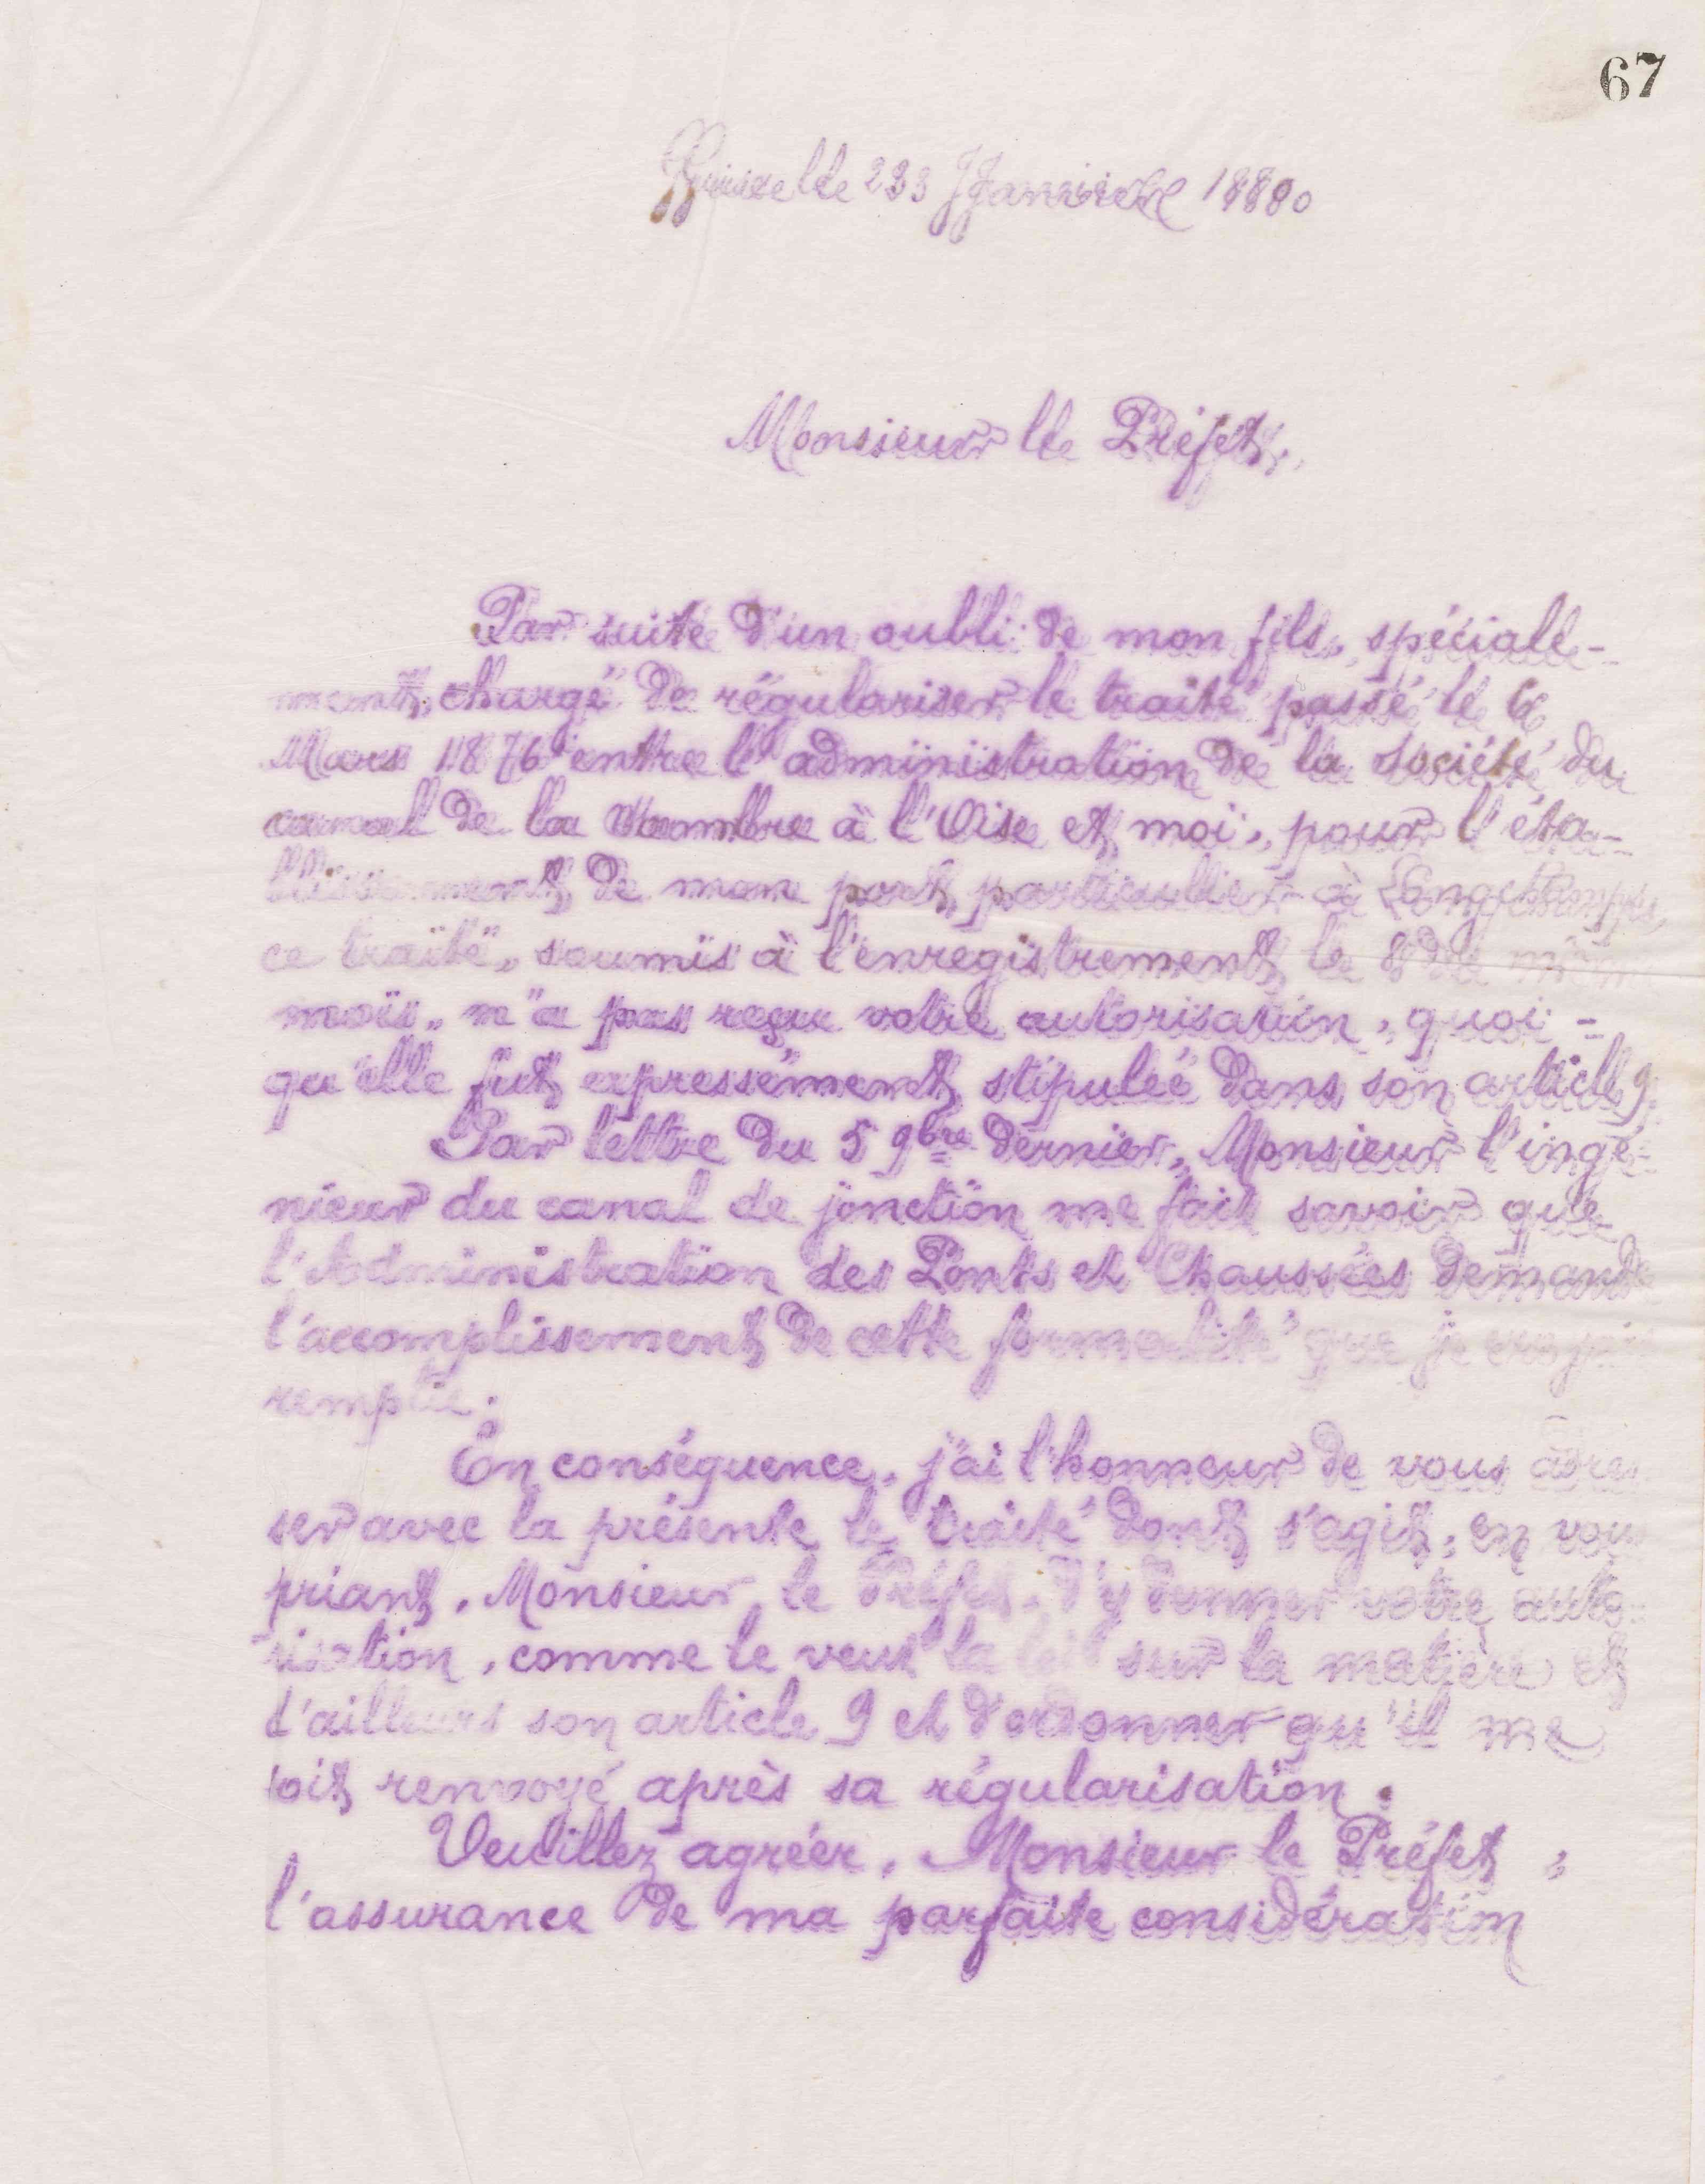 67
Guise le 23 Janvier 1880
Monsieur le Préfet,
Par suite d'un oubli de mon fils, spéciale-
ment chargé de régulariser le traité passé le 6
Mars 1876 entre l'administration de la Société du
canal de la Sambre à l'Oise et moi, pour l'éta-
blissement de mon port particulier à Longchamps,
ce traité, soumis à l'enregistrement le 8 du même
mois, n'a pas reçu votre autorisation, quoi-
qu'elle fut expressément stipulée dans son article 9.
Par lettre du 5 9bre dernier, Monsieur l'ingé-
nieur du canal de jonction me fait savoir que
l'Administration des Ponts et Chaussées demande
l'accomplissement de cette formalité que je croyais
remplie.
En conséquence, j'ai l'honneur de vous adres
ser avec la présente le traité dont s'agit, en vous
priant, Monsieur le Préfet, d'y donner votre auto-
risation, comme le veut la loi sur la matière et
d'ailleurs son article 9 et d'ordonner qu'il me
soit renvoyé après sa régularisation.
Veuillez agréer, Monsieur le Préfet,
l'assurance de ma parfaite considération